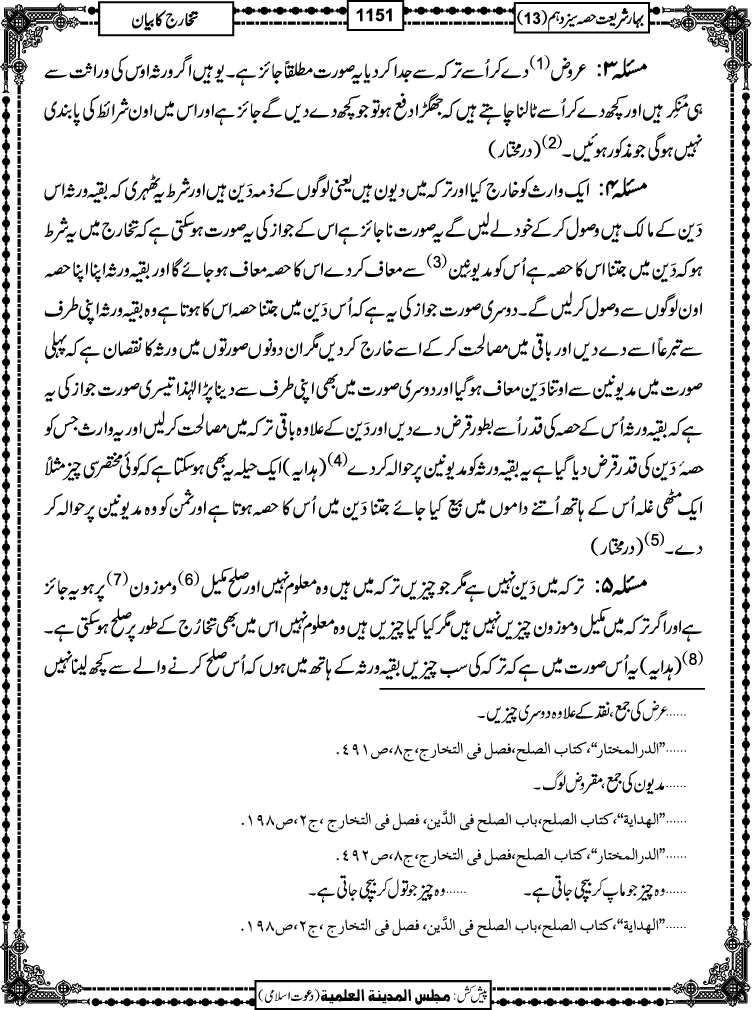 بہارِ شریعت حصہ سیزدہم (13)
1151
تخارج کا بیان
مسئلہ ۳: عروض (1) دے کر اُسے ترکہ سے جدا کر دیا یہ صورت مطلقاً جائز ہے۔ یوہیں اگر ورثہ اوس کی وراثت سے
ہی مُنکِر ہیں اور کچھ دے کر اُسے ٹالنا چاہتے ہیں کہ جھگڑا دفع ہو تو جو کچھ دے دیں گے جائز ہے اور اس میں اون شرائط کی پابندی
نہیں ہوگی جو مذکور ہوئیں۔ (2) (درمختار)
مسئلہ ۴: ایک وارث کو خارج کیا اور ترکہ میں دیون ہیں یعنی لوگوں کے ذمہ دَین ہیں اور شرط یہ ٹھہری کہ بقیہ ورثہ اس
دَین کے مالک ہیں وصول کرکے خود لے لیں گے یہ صورت ناجائز ہے اس کے جواز کی یہ صورت ہوسکتی ہے کہ تخارج میں یہ شرط
ہو کہ دَین میں جتنا اس کا حصہ ہے اُس کو مدیونین (3) سے معاف کردے اس کا حصہ معاف ہوجائے گا اور بقیہ ورثہ اپنا اپنا حصہ
اون لوگوں سے وصول کرلیں گے۔ دوسری صورت جواز کی یہ ہے کہ اُس دَین میں جتنا حصہ اس کا ہوتا ہے وہ بقیہ ورثہ اپنی طرف
سے تبرعاً اسے دے دیں اور باقی میں مصالحت کرکے اسے خارج کردیں مگر ان دونوں صورتوں میں ورثہ کا نقصان ہے کہ پہلی
صورت میں مدیونین سے اوتنا دَین معاف ہوگیا اور دوسری صورت میں بھی اپنی طرف سے دینا پڑا لہٰذا تیسری صورت جواز کی یہ
ہے کہ بقیہ ورثہ اُس کے حصہ کی قدر اُسے بطورِ قرض دے دیں اور دَین کے علاوہ باقی ترکہ میں مصالحت کرلیں اور یہ وارث جس کو
حصۂ دَین کی قدر قرض دیا گیا ہے یہ بقیہ ورثہ کو مدیونین پر حوالہ کردے (4) (ہدایہ) ایک حیلہ یہ بھی ہوسکتا ہے کہ کوئی مختصر سی چیز مثلاً
ایک مٹھی غلہ اُس کے ہاتھ اُتنے داموں میں بیع کیا جائے جتنا دَین میں اُس کا حصہ ہوتا ہے اور ثمن کو وہ مدیونین پر حوالہ کر
دے۔ (5) (درمختار)
مسئلہ ۵: ترکہ میں دَین نہیں ہے مگر جو چیزیں ترکہ میں ہیں وہ معلوم نہیں اور صلح مکیل (6) و موزون (7) پر ہو یہ جائز
ہے اور اگر ترکہ میں مکیل و موزون چیزیں نہیں ہیں مگر کیا کیا چیزیں ہیں وہ معلوم نہیں اس میں بھی تخارُج کے طور پر صلح ہوسکتی ہے۔
(8) (ہدایہ) یہ اُس صورت میں ہے کہ ترکہ کی سب چیزیں بقیہ ورثہ کے ہاتھ میں ہوں کہ اُس صلح کرنے والے سے کچھ لینا نہیں
......عرض کی جمع، نقد کے علاوہ دوسری چیزیں۔
......"الدرالمختار"، کتاب الصلح، فصل فی التخارج، ج۸، ص۴۹۱.
......مدیون کی جمع، مقروض لوگ۔
......"الهداية"، كتاب الصلح، باب الصلح فی الدَّین، فصل فی التخارج، ج۲، ص۱۹۸.
......"الدرالمختار"، کتاب الصلح، فصل فی التخارج، ج۸، ص۴۹۲.
......وہ چیز جو ماپ کر بیچی جاتی ہے۔ ......وہ چیز جو تول کر بیچی جاتی ہے۔
......"الهداية"، كتاب الصلح، باب الصلح فی الدَّین، فصل فی التخارج، ج۲، ص۱۹۸.
پیش کش: مجلس المدینة العلمیة (دعوتِ اسلامی)